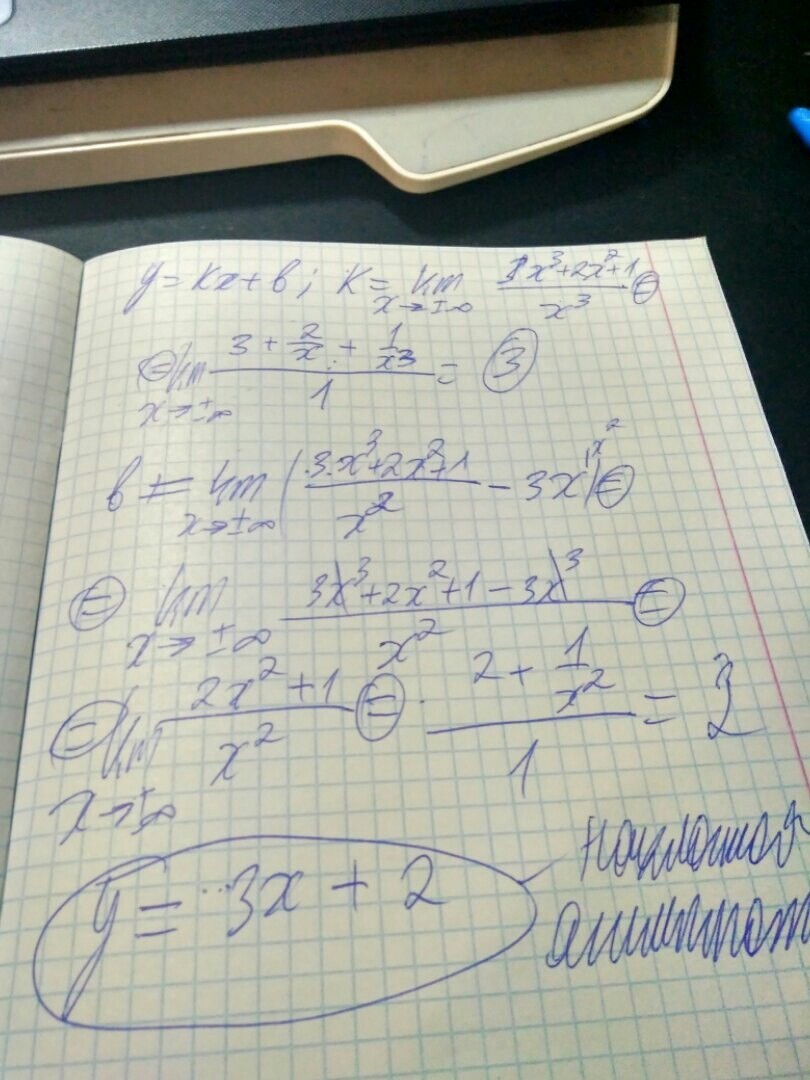 y = kx + b; k = lim x→±∞ (3x³+2x²+1)/x³ ⊜
⊜ lim x→±∞ (3 + 2/x + 1/x³)/1 = 3
b = lim x→±∞ ((3x³+2x²+1)/x² − 3x) ⊜
⊜ lim x→±∞ (3x³+2x²+1−3x³)/x² ⊜
⊜ lim x→±∞ (2x²+1)/x² ⊜ (2 + 1/x²)/1 = 2
y = 3x + 2
наклонная
асимптота